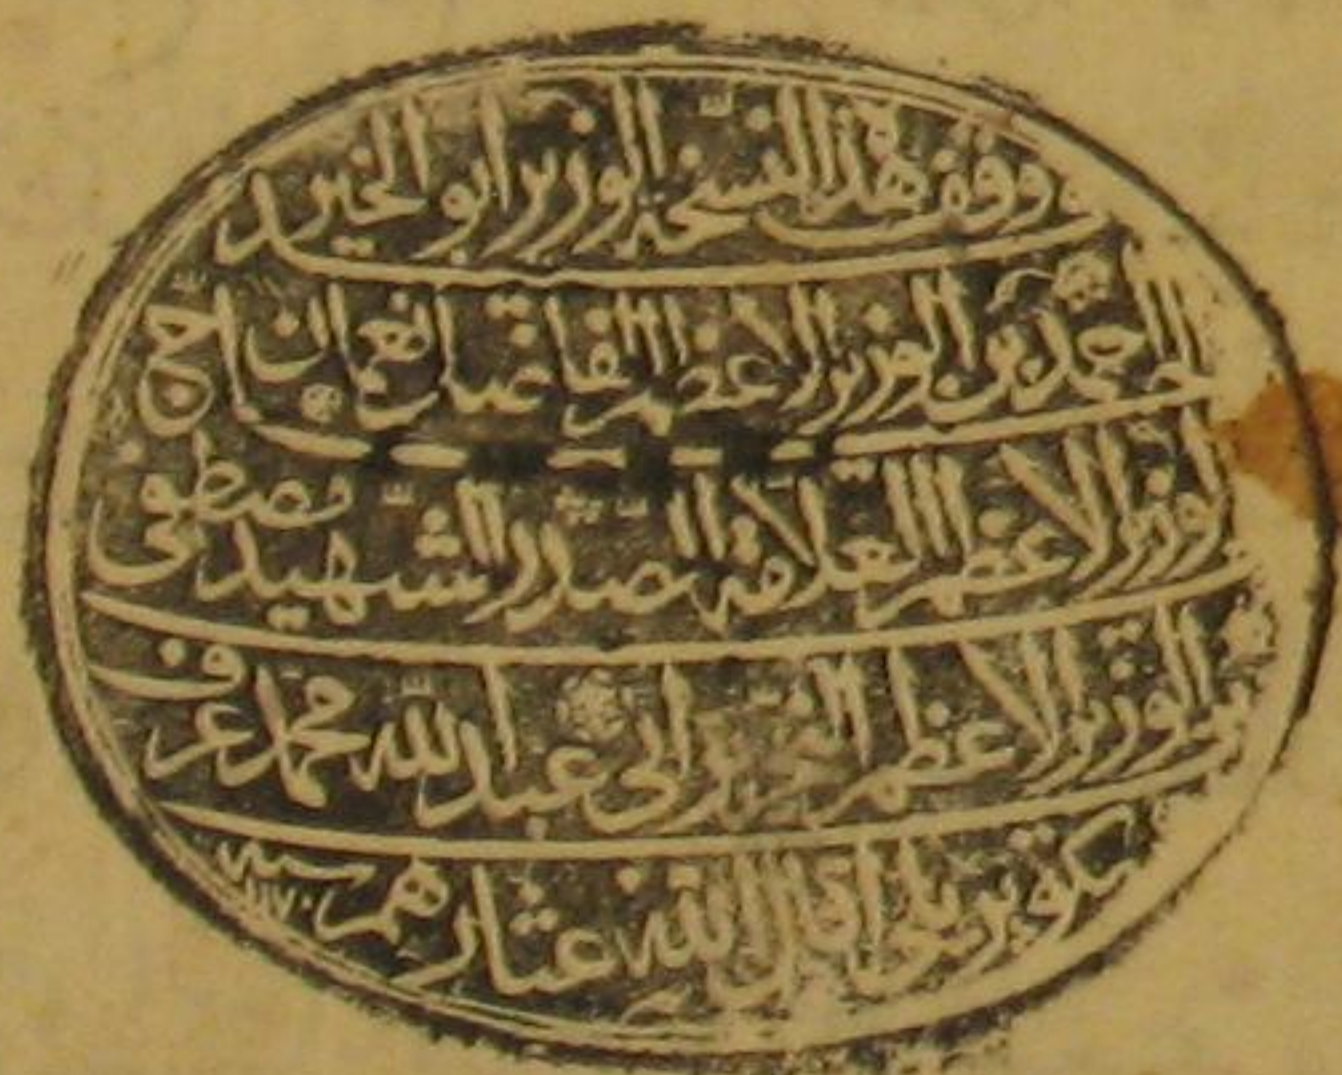 وقف هذا النسخة الوزير ابو الخير
الحاج احمد بن الوزير الاعظم الفاتح نعمان بن
الوزير الاعظم العلامة الصدر الشهيد مصطفى
بن الوزير الاعظم ابي عبد الله محمد عرف
بكوپريلى اقال الله عثارهم سنه